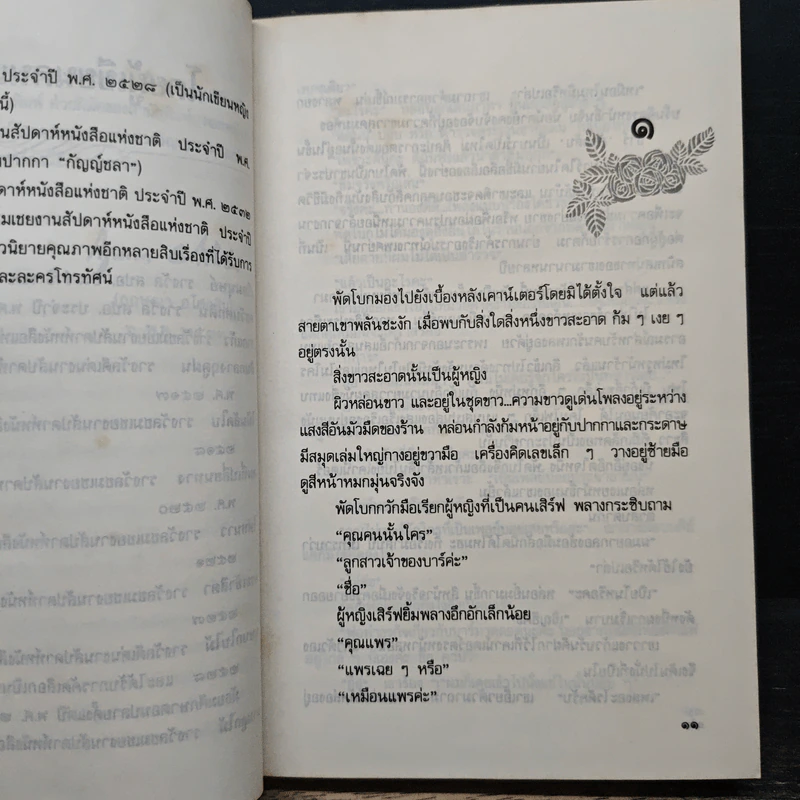 ประจำปี พ.ศ. ๒๕๒๘ (เป็นนักเขียนหญิง
นี้)
านสัปดาห์หนังสือแห่งชาติ ประจำปี พ.ศ.
มปากกา "กัญญ์ชลา")
ดาห์หนังสือแห่งชาติ ประจำปี พ.ศ. ๒๕๓๒
มเชยงานสัปดาห์หนังสือแห่งชาติ ประจำปี
วนิยายคุณภาพอีกหลายสิบเรื่องที่ได้รับการ
และละครโทรทัศน์
๑
พัดโบกมองไปยังเบื้องหลังเคาน์เตอร์โดยมิได้ตั้งใจ แต่แล้ว
สายตาเขาพลันชะงัก เมื่อพบกับสิ่งใดสิ่งหนึ่งขาวสะอาด ก้ม ๆ เงย ๆ
อยู่ตรงนั้น
สิ่งขาวสะอาดนั้นเป็นผู้หญิง
ผิวหล่อนขาว และอยู่ในชุดขาว...ความขาวดูเด่นโพลงอยู่ระหว่าง
แสงสีอันมัวมืดของร้าน หล่อนกำลังก้มหน้าอยู่กับปากกาและกระดาษ
มีสมุดเล่มใหญ่กางอยู่ขวามือ เครื่องคิดเลขเล็ก ๆ วางอยู่ซ้ายมือ
ดูสีหน้าหมกมุ่นจริงจัง
พัดโบกกวักมือเรียกผู้หญิงที่เป็นคนเสิร์ฟ พลางกระซิบถาม
"คุณคนนั้นใคร"
"ลูกสาวเจ้าของบาร์ค่ะ"
"ชื่อ"
ผู้หญิงเสิร์ฟยิ้มพลางอึกอักเล็กน้อย
"คุณแพร"
"แพรเฉย ๆ หรือ"
"เหมือนแพรค่ะ"
๑๑